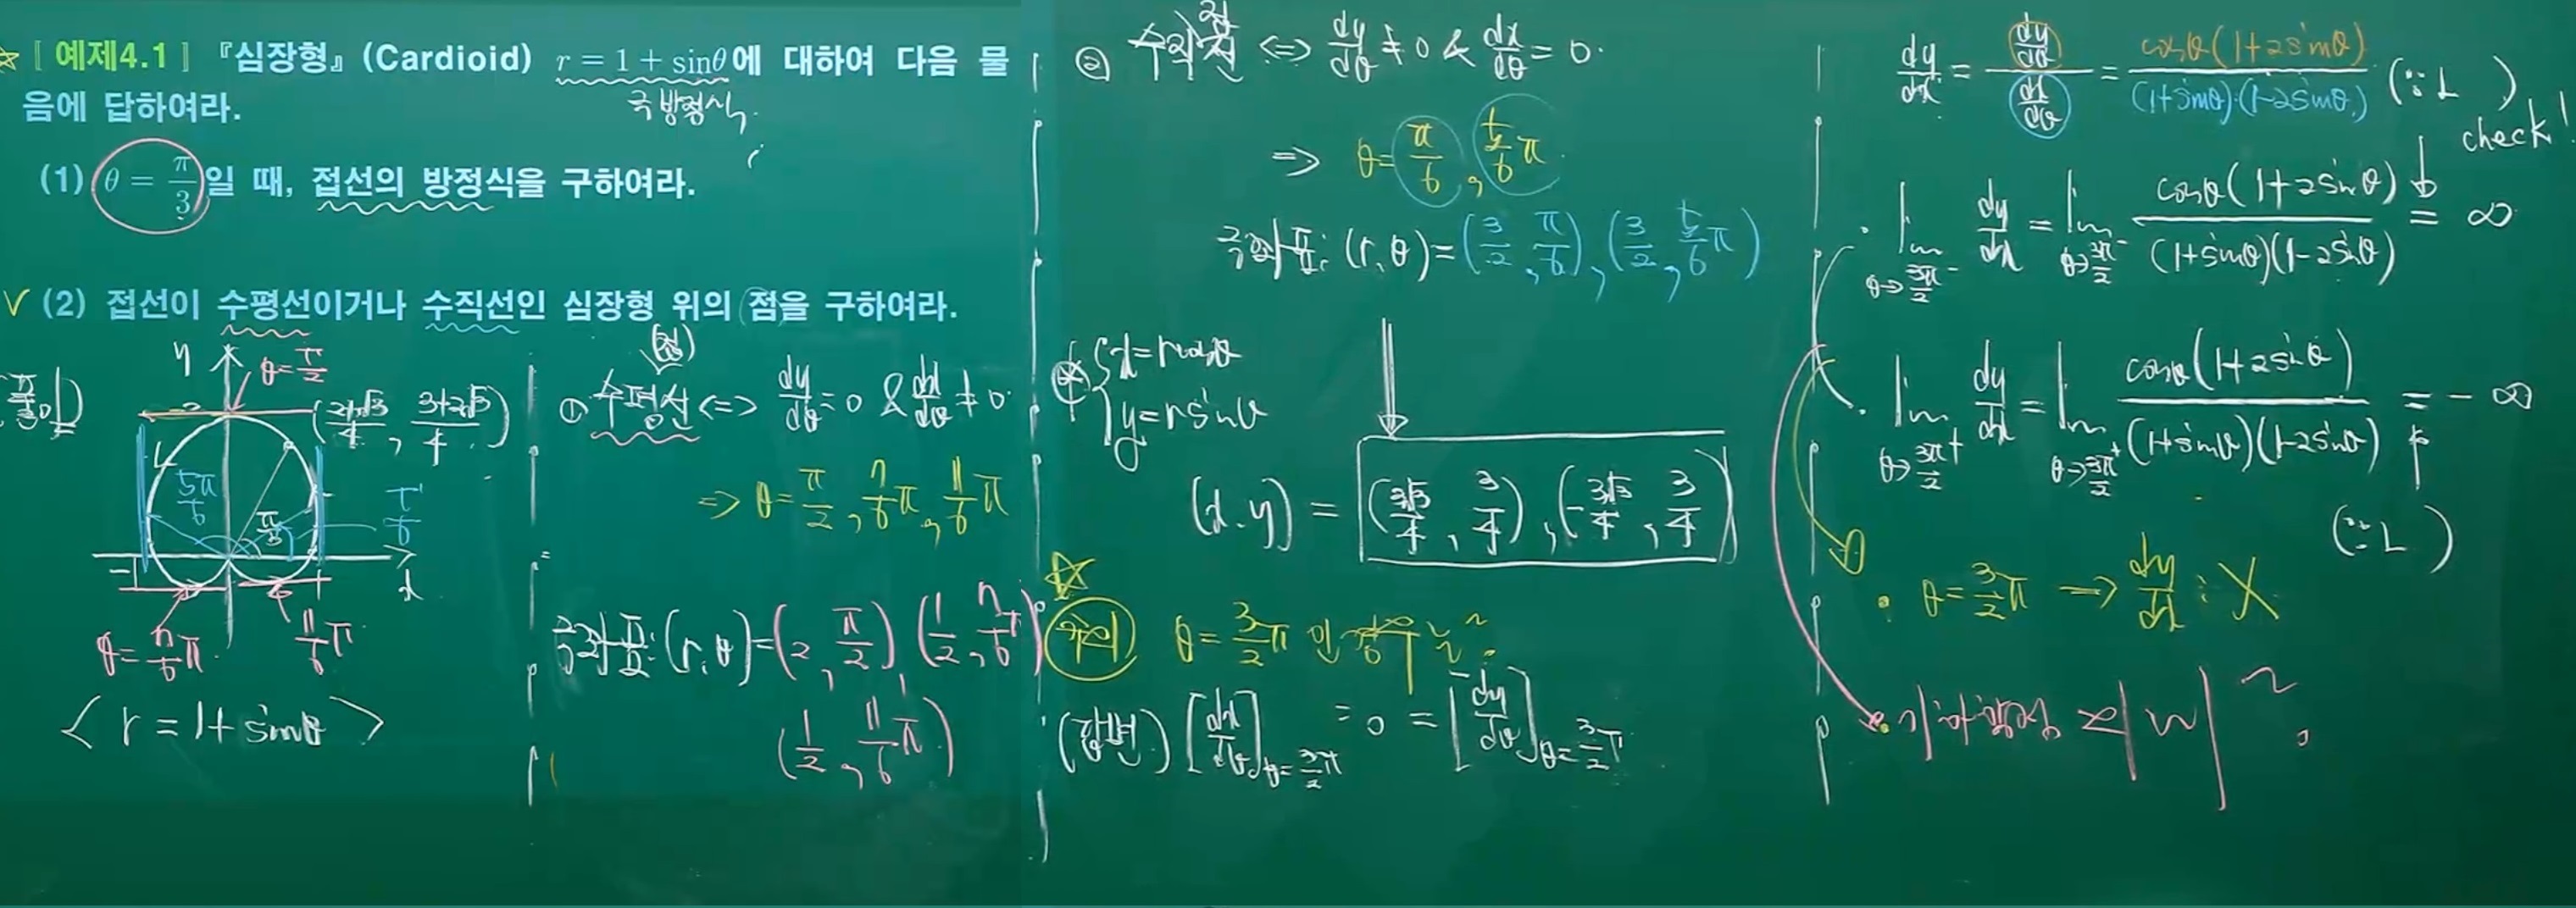 ☆ [예제4.1] 『심장형』(Cardioid) r = 1 + sinθ에 대하여 다음 물
음에 답하여라.
극방정식
(1) θ = π/3 일 때, 접선의 방정식을 구하여라.
(2) 접선이 수평선이거나 수직선인 심장형 위의 점을 구하여라.
y
θ = π/2
((2+√3)/4, (3+2√3)/4)
5π/6
π/3
π/6
x
θ = 7/6 π
11/6 π
< r = 1 + sinθ >
① 수평선 <=> dy/dθ = 0 & dx/dθ ≠ 0
=> θ = π/2, 7/6 π, 11/6 π
극좌표: (r, θ) = (2, π/2), (1/2, 7/6 π)
(1/2, 11/6 π)
② 수직선 <=> dy/dθ ≠ 0 & dx/dθ = 0.
=> θ = π/6, 5/6 π
극좌표: (r, θ) = (3/2, π/6), (3/2, 5/6 π)
x = r cosθ
y = r sinθ
(x, y) = (3√3/4, 3/4), (-3√3/4, 3/4)
☆
주의 θ = 3/2 π 인 경우 ~?
(답변) [dx/dθ]θ=3/2 π = 0 = [dy/dθ]θ=3/2 π
dy/dx = (dy/dθ)/(dx/dθ) = cosθ(1+2sinθ)/(1+sinθ)·(1-2sinθ) (∵ L )
check!
· lim θ→3π/2⁻ dy/dx = lim θ→3π/2⁻ cosθ(1+2sinθ)/(1+sinθ)(1-2sinθ) = ∞
· lim θ→3π/2⁺ dy/dx = lim θ→3π/2⁺ cosθ(1+2sinθ)/(1+sinθ)(1-2sinθ) = - ∞
(∵ L )
· θ = 3/2 π => dy/dx : X